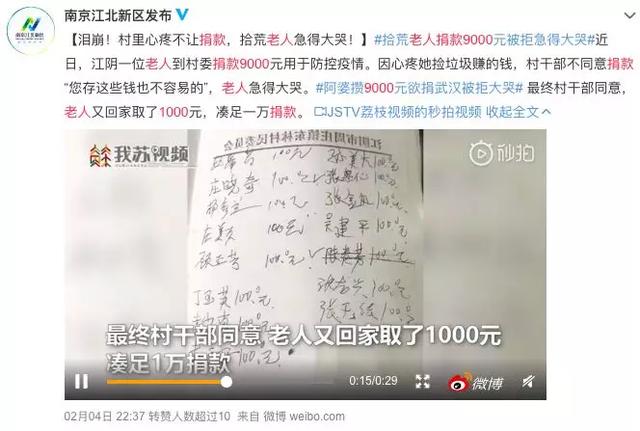 南京江北新区发布
【泪崩！村里心疼不让捐款，拾荒老人急得大哭！】#拾荒老人捐款9000元被拒急得大哭#近
日，江阴一位老人到村委捐款9000元用于防控疫情。因心疼她捡垃圾赚的钱，村干部不同意捐款
“您存这些钱也不容易的”，老人急得大哭。#阿婆攒9000元欲捐武汉被拒大哭# 最终村干部同意，
老人又回家取了1000元，凑足一万捐款。 JSTV荔枝视频的秒拍视频 收起全文
我苏视频
秒拍
100元
100元
100元
100元
吴建平100元
100元
100元
100元
最终村干部同意 老人又回家取了1000元
凑足1万捐款
0:15/0:29
微博
02月04日 22:37 转赞人数超过10 来自 微博 weibo.com